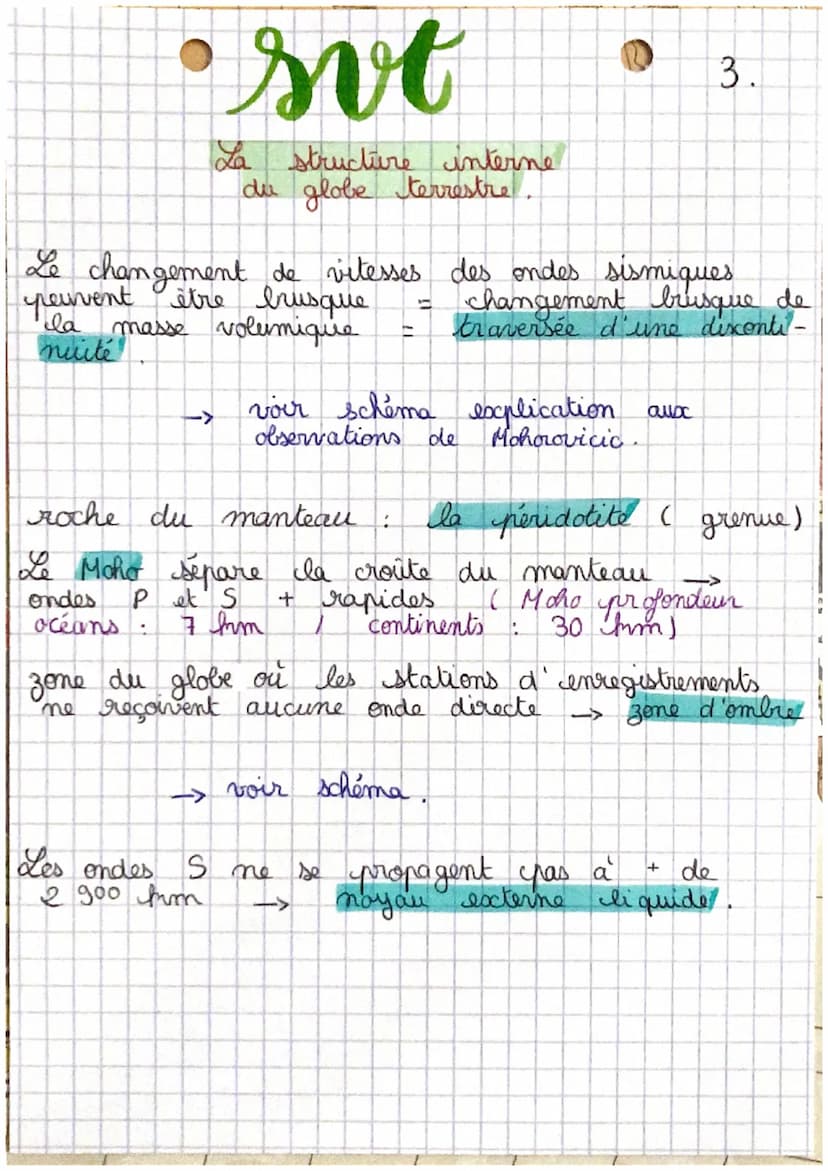 svt
3.
La structure interne
du globe terrestre.
Le changement de vitesses des ondes sismiques
peuvent être brusque = changement brusque de
la masse volumique = traversée d'une disconti-
nuité.
→ voir schéma explication aux
observations de Mohorovicic.
roche du manteau : la péridotite (grenue)
Le Moho sépare la croûte du manteau →
ondes P et S + rapides (Moho profondeur
océans : 7 km / continents : 30 km)
zone du globe où les stations d'enregistrements
ne reçoivent aucune onde directe → zone d'ombre
→ voir schéma.
Les ondes S ne se propagent pas à + de
2 900 km → noyau externe liquide.